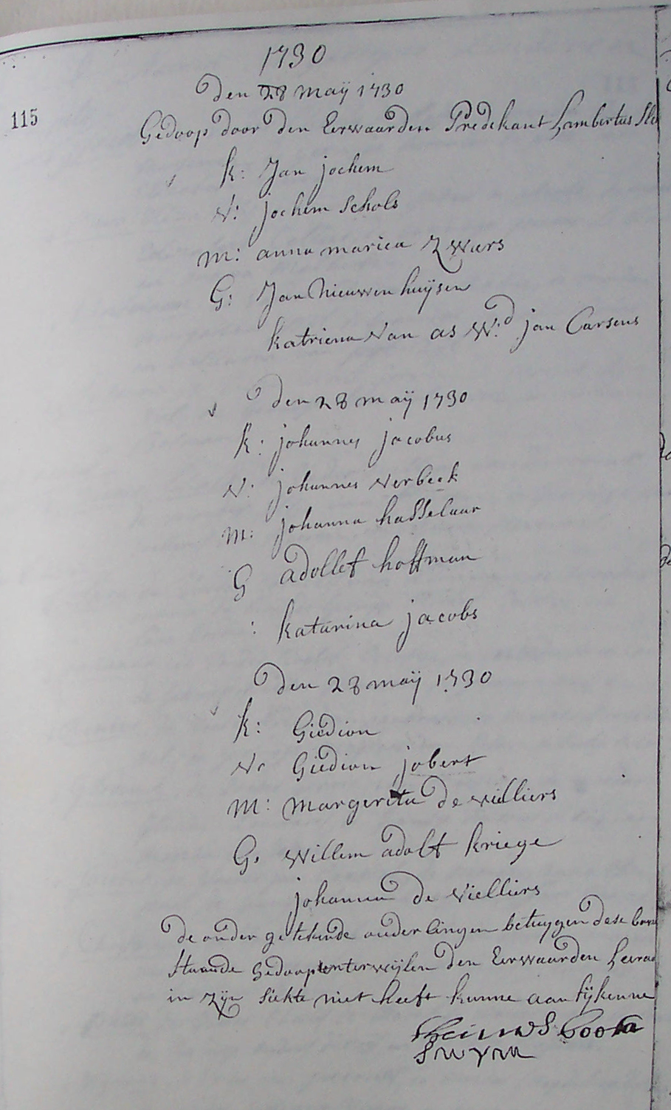 1730
115
Den 28 maÿ 1730
Gedoop door den Eerwaarden Predekant Lambertus Slo
k: Jan jochem
v: jochem schols
m: anna mariea Zwars
G: Jan Nieuwenhuijsen
katriena van as W:d jan Carsens
Den 28 maÿ 1730
k: johannes jacobus
v: johannes verbeek
m: johanna hasselaar
G adollef hoffman
: katarina jacobs
Den 28 maÿ 1730
k: Giedion
v: Giedion jobert
m: margerita de villiers
G: willem adolf kriege
johanna de vielliers
de onder getekende ouderlingen betuygen dese
staande Gedoopt terwijlen den Eerwaarden
in zijn siekte niet heeft kunne aantijkenne